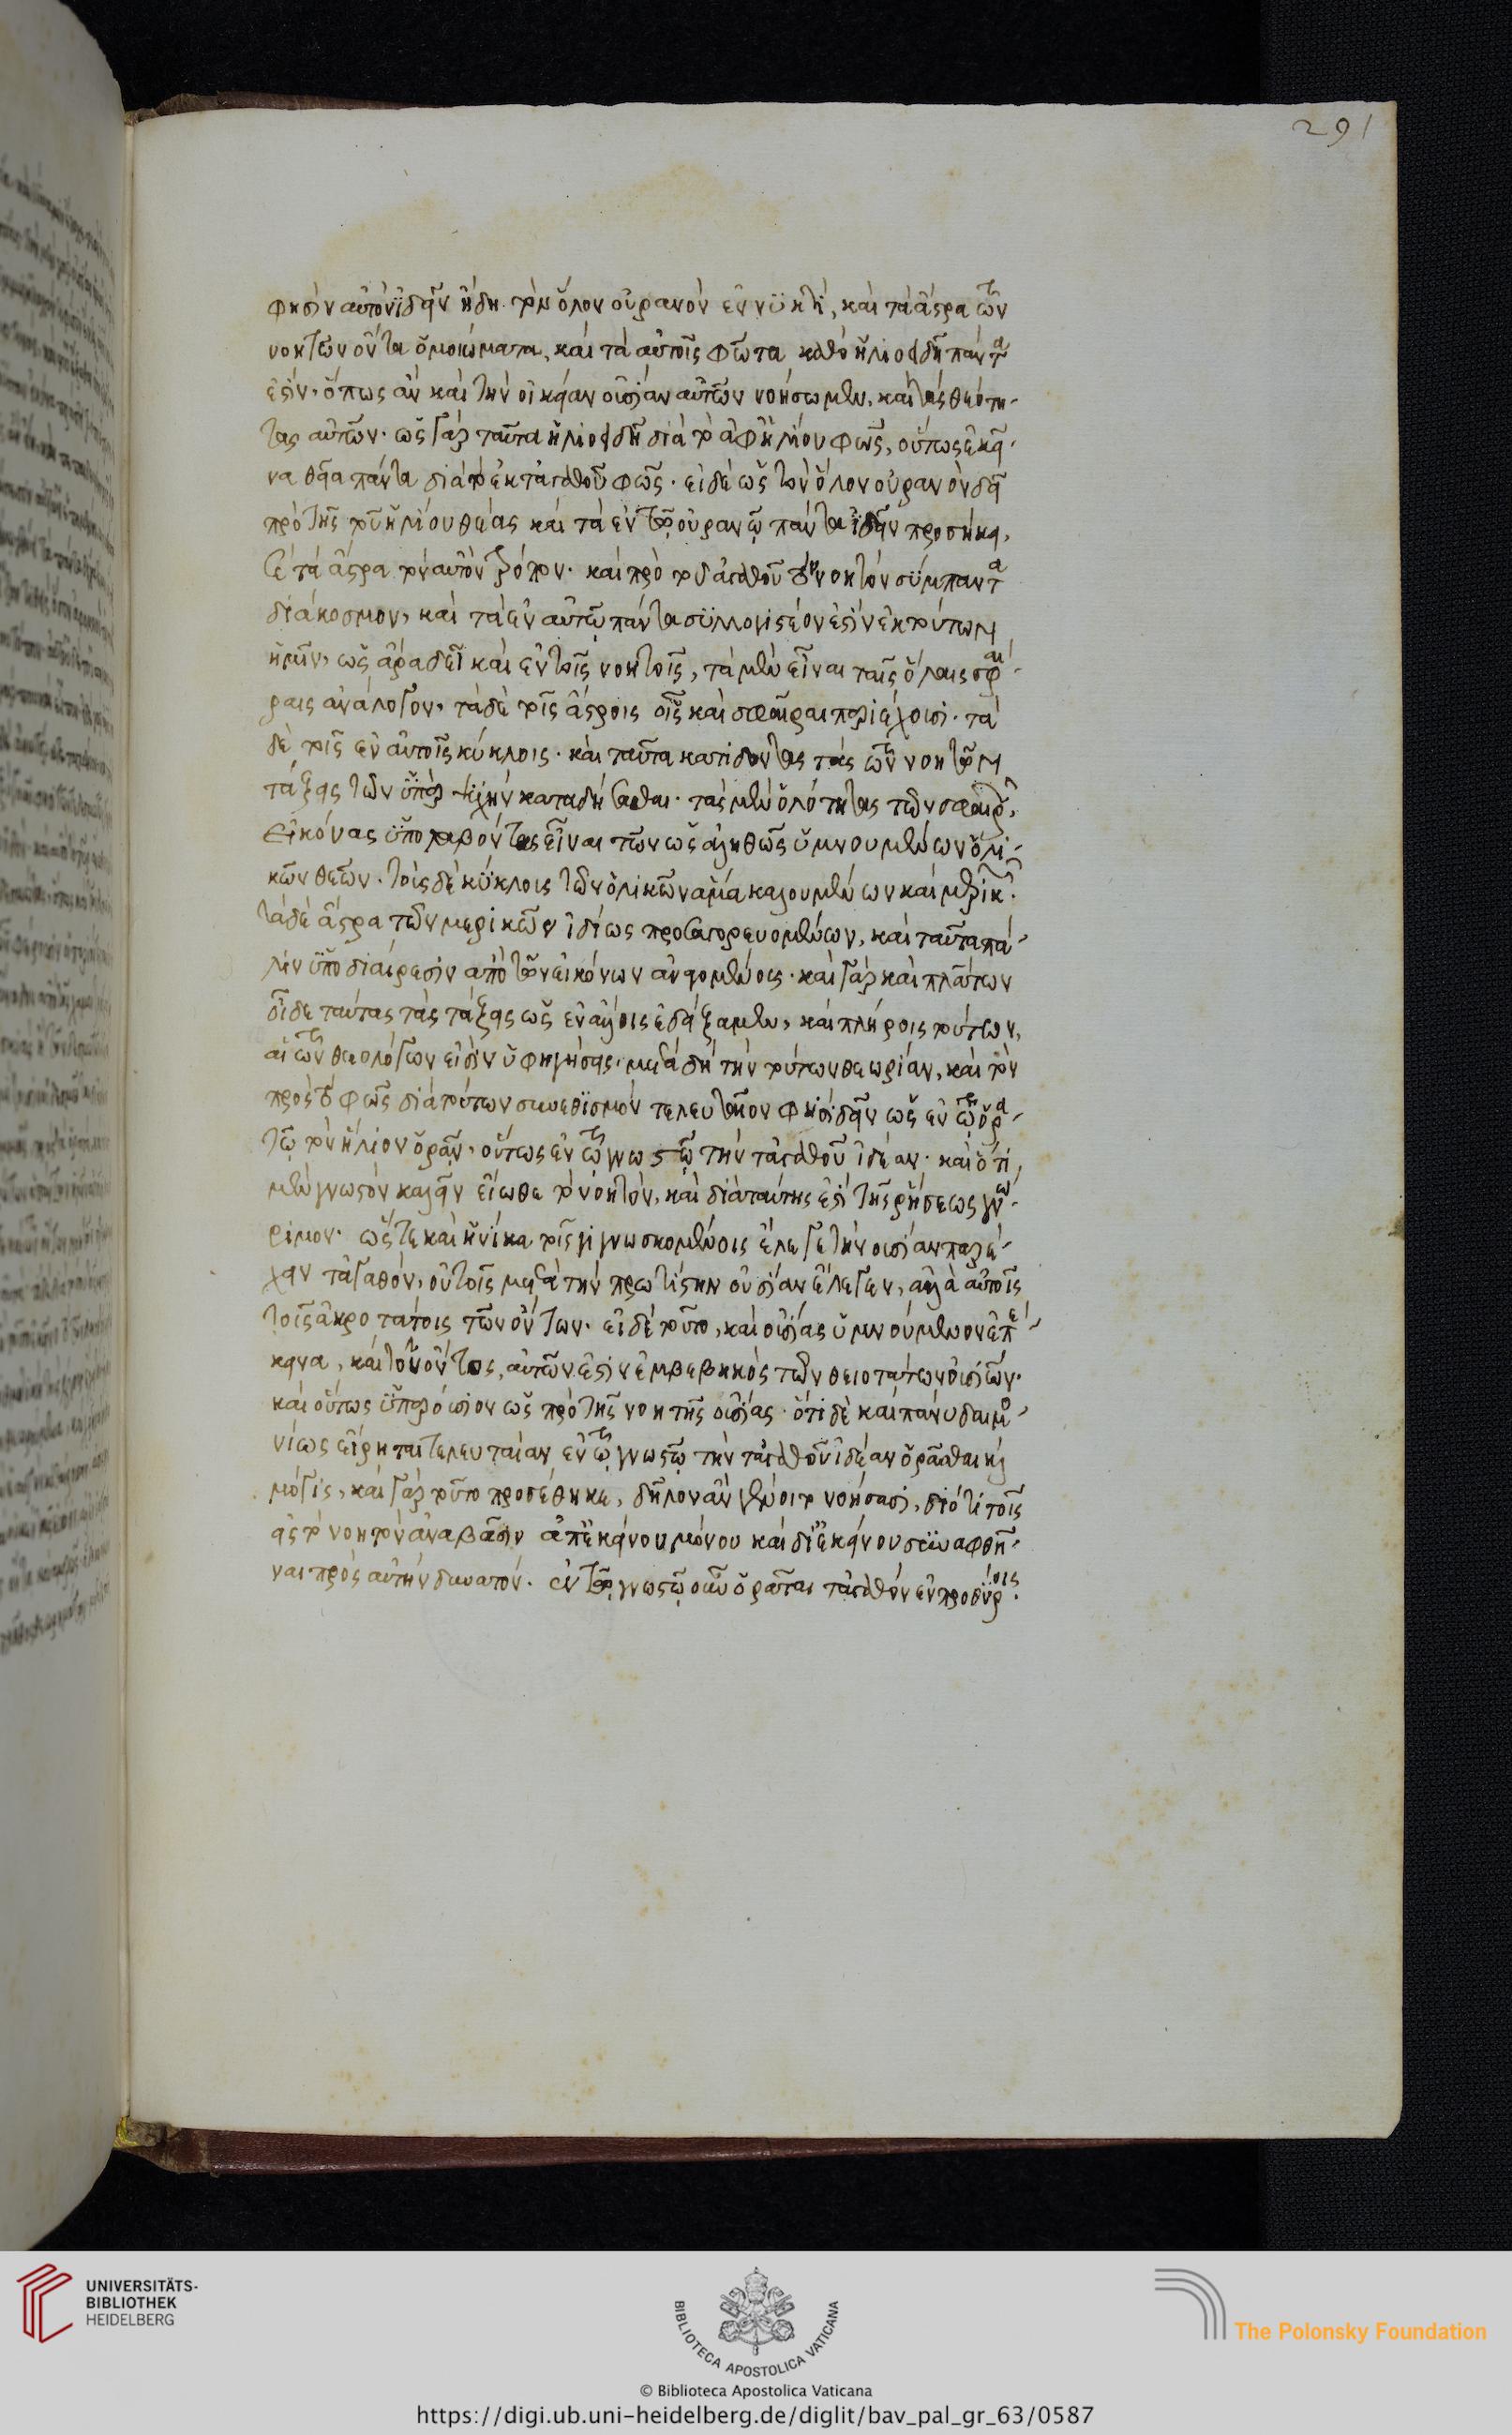 291
φησὶν αὐτὸν ἰδεῖν ἤδη τὸν ὅλον οὐρανὸν ἐν νυκτί, καὶ τὰ ἄστρα τῶν
νοητῶν ὄντα ὁμοιώματα, καὶ τὰ αὐτοῖς φῶτα καθὸ ἡλιοειδῆ πάντα
ἐστίν· ὅπως ἂν καὶ τὴν οἰκείαν οὐσίαν αὐτῶν νοήσωμεν, καὶ τὰς θεότη-
τας αὐτῶν· ὡς γὰρ ταῦτα ἡλιοειδῆ διὰ τὸ ἀφ' ἡλίου φῶς, οὕτως ἐκεῖ-
να θεῖα πάντα διὰ τὸ ἐκ τἀγαθοῦ φῶς· εἰ δὲ ὡς τὸν ὅλον οὐρανὸν δεῖ
πρὸ τῆς τοῦ ἡλίου θέας καὶ τὰ ἐν τῷ οὐρανῷ πάντα ἰδεῖν προσήκει,
τά ἄστρα τὸν αὐτὸν τρόπον· καὶ πρὸ τοῦ ἀγαθοῦ τὸν νοητὸν σύμπαντα
διάκοσμον, καὶ τὰ ἐν αὐτῷ πάντα συλλογιστέον ἐστὶν ἐκ τούτων
ἡμῖν, ὡς ἄρα δεῖ καὶ ἐν τοῖς νοητοῖς, τὰ μὲν εἶναι ταῖς ὅλαις σφαί-
ραις ἀνάλογον, τὰ δὲ τοῖς ἄστροις οἷς καὶ σφαῖραι περιέχουσι· τὰ
δὲ τοῖς ἐν αὐτοῖς κύκλοις· καὶ ταῦτα κατιδόντας τὰς τῶν νοητῶν
τάξεις τῶν ὑπὲρ καταδήσασθαι· τὰς μὲν ὁλότητας τῶν σφαιρῶν
εἰκόνας ὑπολαβόντας εἶναι τῶν ὡς ἀληθῶς ὑμνουμένων ὁλι-
κῶν θεῶν· τοῖς δὲ κύκλοις τῶν ὁλικῶν ἅμα καλουμένων καὶ μερικῶν·
τὰ δὲ ἄστρα τῶν μερικῶν ἰδίως προσαγορευομένων, καὶ ταῦτα πά-
λιν ὑποδιαίρεσιν ἀπὸ τῶν εἰκόνων ἀγομένοις· καὶ γὰρ καὶ πλάτων
οἶδε ταύτας τὰς τάξεις ὡς ἐν ἄλλοις ἐδείξαμεν, καὶ πλήρεις τούτων,
αἱ τῶν θεολόγων εἰσὶν ὑφηγήσεις· μετὰ δὴ τὴν τούτων θεωρίαν, καὶ τὸν
πρὸς τὸ φῶς διὰ τούτων συνεθισμὸν τελευταῖον φησὶ δεῖν ὡς ἐν τῷ ὁρα-
τῷ τὸν ἥλιον ὁρᾶν, οὕτως ἐν τῷ γνωστῷ τὴν τἀγαθοῦ ἰδέαν· καὶ ὅτι
μὲν γνωστὸν καλεῖν εἴωθε τὸ νοητόν, καὶ διὰ ταύτης ἐστὶ τῆς ῥήσεως γνώ-
ριμον· ὥστε καὶ ἡνίκα τοῖς γιγνωσκομένοις ἔλεγε τὴν οὐσίαν παρέ-
χειν τἀγαθόν, οὐ τοῖς μετὰ τὴν πρωτίστην οὐσίαν ἔλεγεν, ἀλλὰ αὐτοῖς
τοῖς ἀκροτάτοις τῶν ὄντων· εἰ δὲ τοῦτο, καὶ οὐσίας ὑμνούμενον ἐπέ-
κεινα, καὶ τοῦ ὄντος, αὐτῶν ἐστὶν ἐμβεβηκὸς τῶν θειοτάτων οὐσιῶν·
καὶ οὕτως ὑπερούσιον ὡς πρὸ τῆς νοητῆς οὐσίας· ὅτι δὲ καὶ πάνυ δαιμο-
νίως εἴρηται τελευταίαν ἐν τῷ γνωστῷ τὴν τἀγαθοῦ ἰδέαν ὁρᾶσθαι καὶ
μόγις, καὶ γὰρ τοῦτο προσέθηκε, δῆλον ἂν γένοιτο νοήσασι, διότι τοῖς
εἰς τὸ νοητὸν ἀναβᾶσιν ἀπ' ἐκείνου μόνου καὶ δι' ἐκείνου συναφθῆ-
ναι πρὸς αὐτὴν δυνατόν· ἐν τῷ γνωστῷ οὖν ὁρᾶται τἀγαθὸν ἐν προθύροις
UNIVERSITÄTS-
BIBLIOTHEK
HEIDELBERG
BIBLIOTECA APOSTOLICA VATICANA
The Polonsky Foundation
© Biblioteca Apostolica Vaticana
https://digi.ub.uni-heidelberg.de/diglit/bav_pal_gr_63/0587